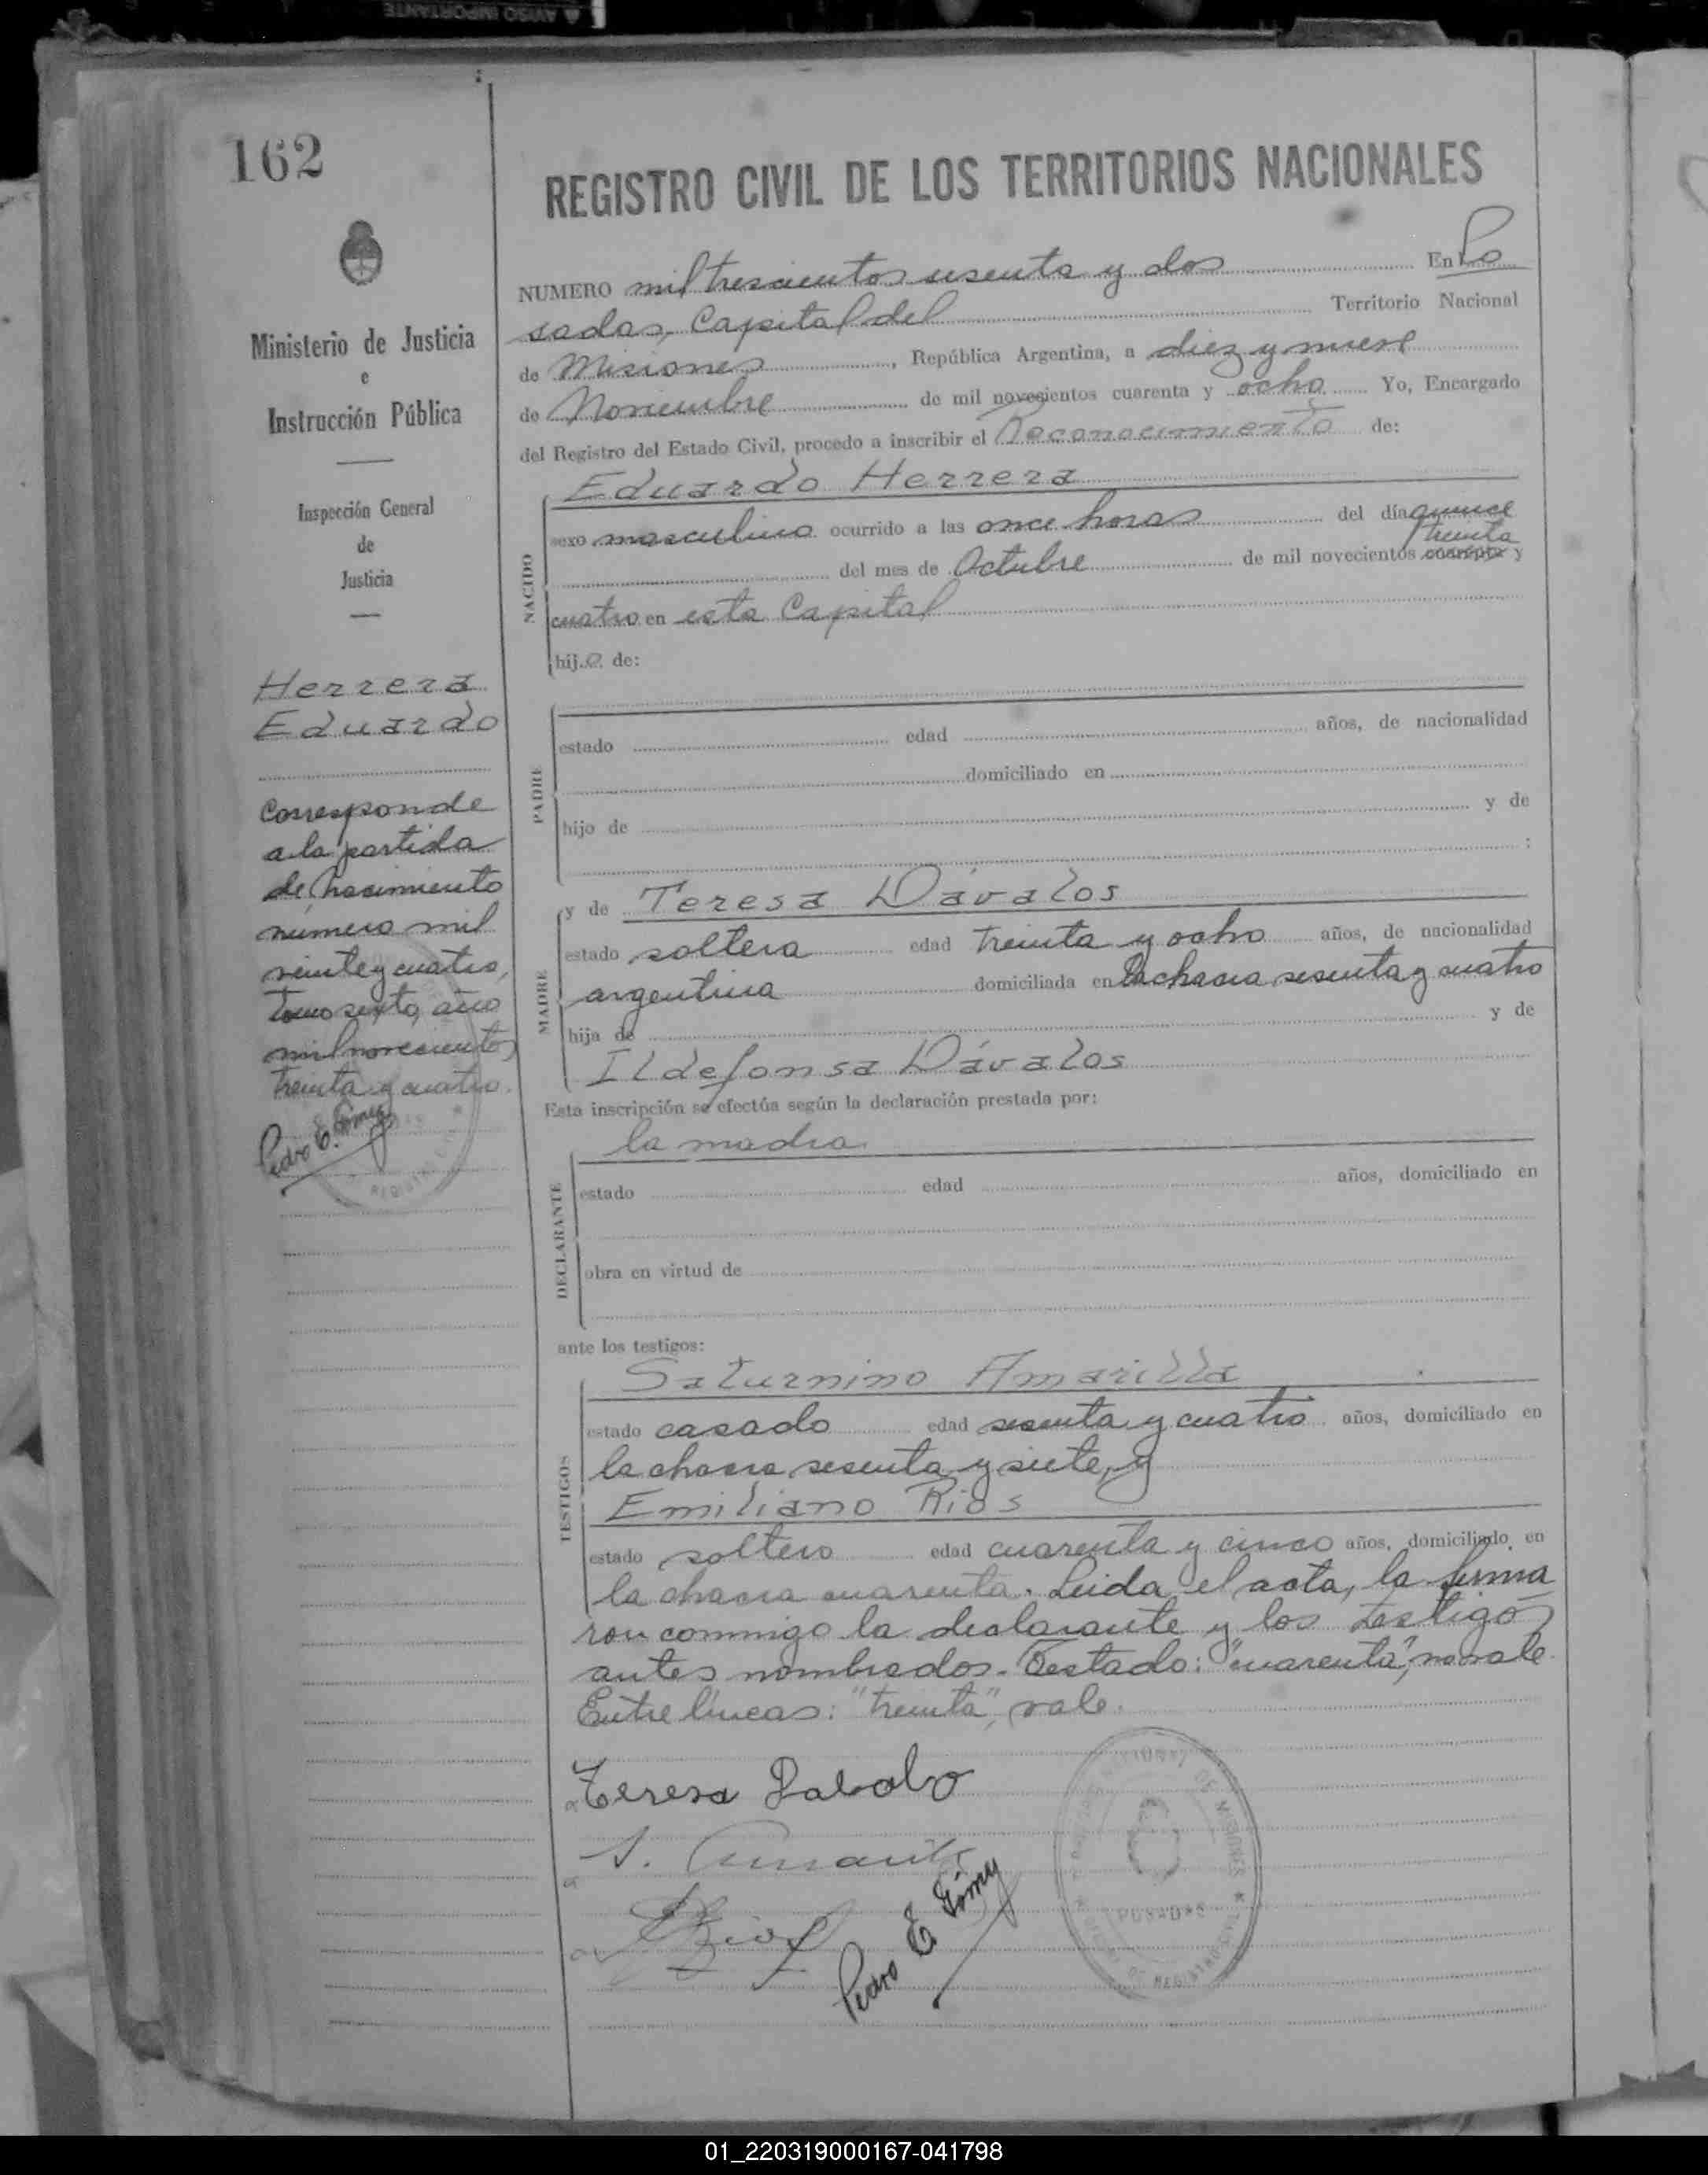 AVISO IMPORTANTE
162
REGISTRO CIVIL DE LOS TERRITORIOS NACIONALES
Ministerio de Justicia
e
Instrucción Pública
Inspección General
de
Justicia
Herrera
Eduardo
Corresponde
a la partida
de nacimiento
número mil
veinte y cuatro,
tomo sexto, año
mil novecientos
treinta y cuatro.
Pedro E.
NUMERO mil trescientos sesenta y dos En Po
sadas, Capital del Territorio Nacional
de Misiones, República Argentina, a diez y nueve
de Noviembre de mil novecientos cuarenta y ocho Yo, Encargado
del Registro del Estado Civil, procedo a inscribir el Reconocimiento de:
Eduardo Herrera
NACIDO
sexo masculino ocurrido a las once horas del día quince
treinta
del mes de Octubre de mil novecientos cuarenta y
cuatro en esta Capital
hijo de:
PADRE
estado edad años, de nacionalidad
domiciliado en
hijo de y de
:
MADRE
y de Teresa Dávalos
estado soltera edad treinta y ocho años, de nacionalidad
argentina domiciliada en la chacra sesenta y cuatro
hija de y de
Ildefonsa Dávalos
Esta inscripción se efectúa según la declaración prestada por:
la madre
DECLARANTE
estado edad años, domiciliado en
obra en virtud de
ante los testigos:
TESTIGOS
Saturnino Amarilla
estado casado edad sesenta y cuatro años, domiciliado en
la chacra sesenta y siete, y
Emiliano Rios
estado soltero edad cuarenta y cinco años, domiciliado en
la chacra cuarenta. Leida el acta, la firma
ron conmigo la declarante y los testigos
antes nombrados. Testado: "cuarenta", no vale.
Entre líneas: "treinta", vale.
Teresa Dabalo
S.
Rios
Pedro E
POSADAS
01_220319000167-041798